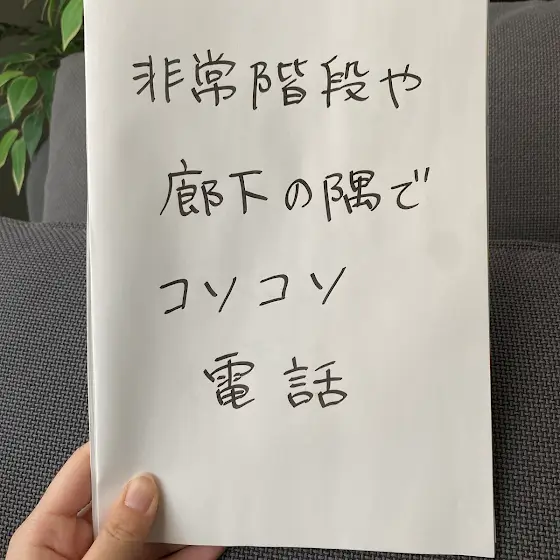 非常階段や
廊下の隅で
コソコソ
電話